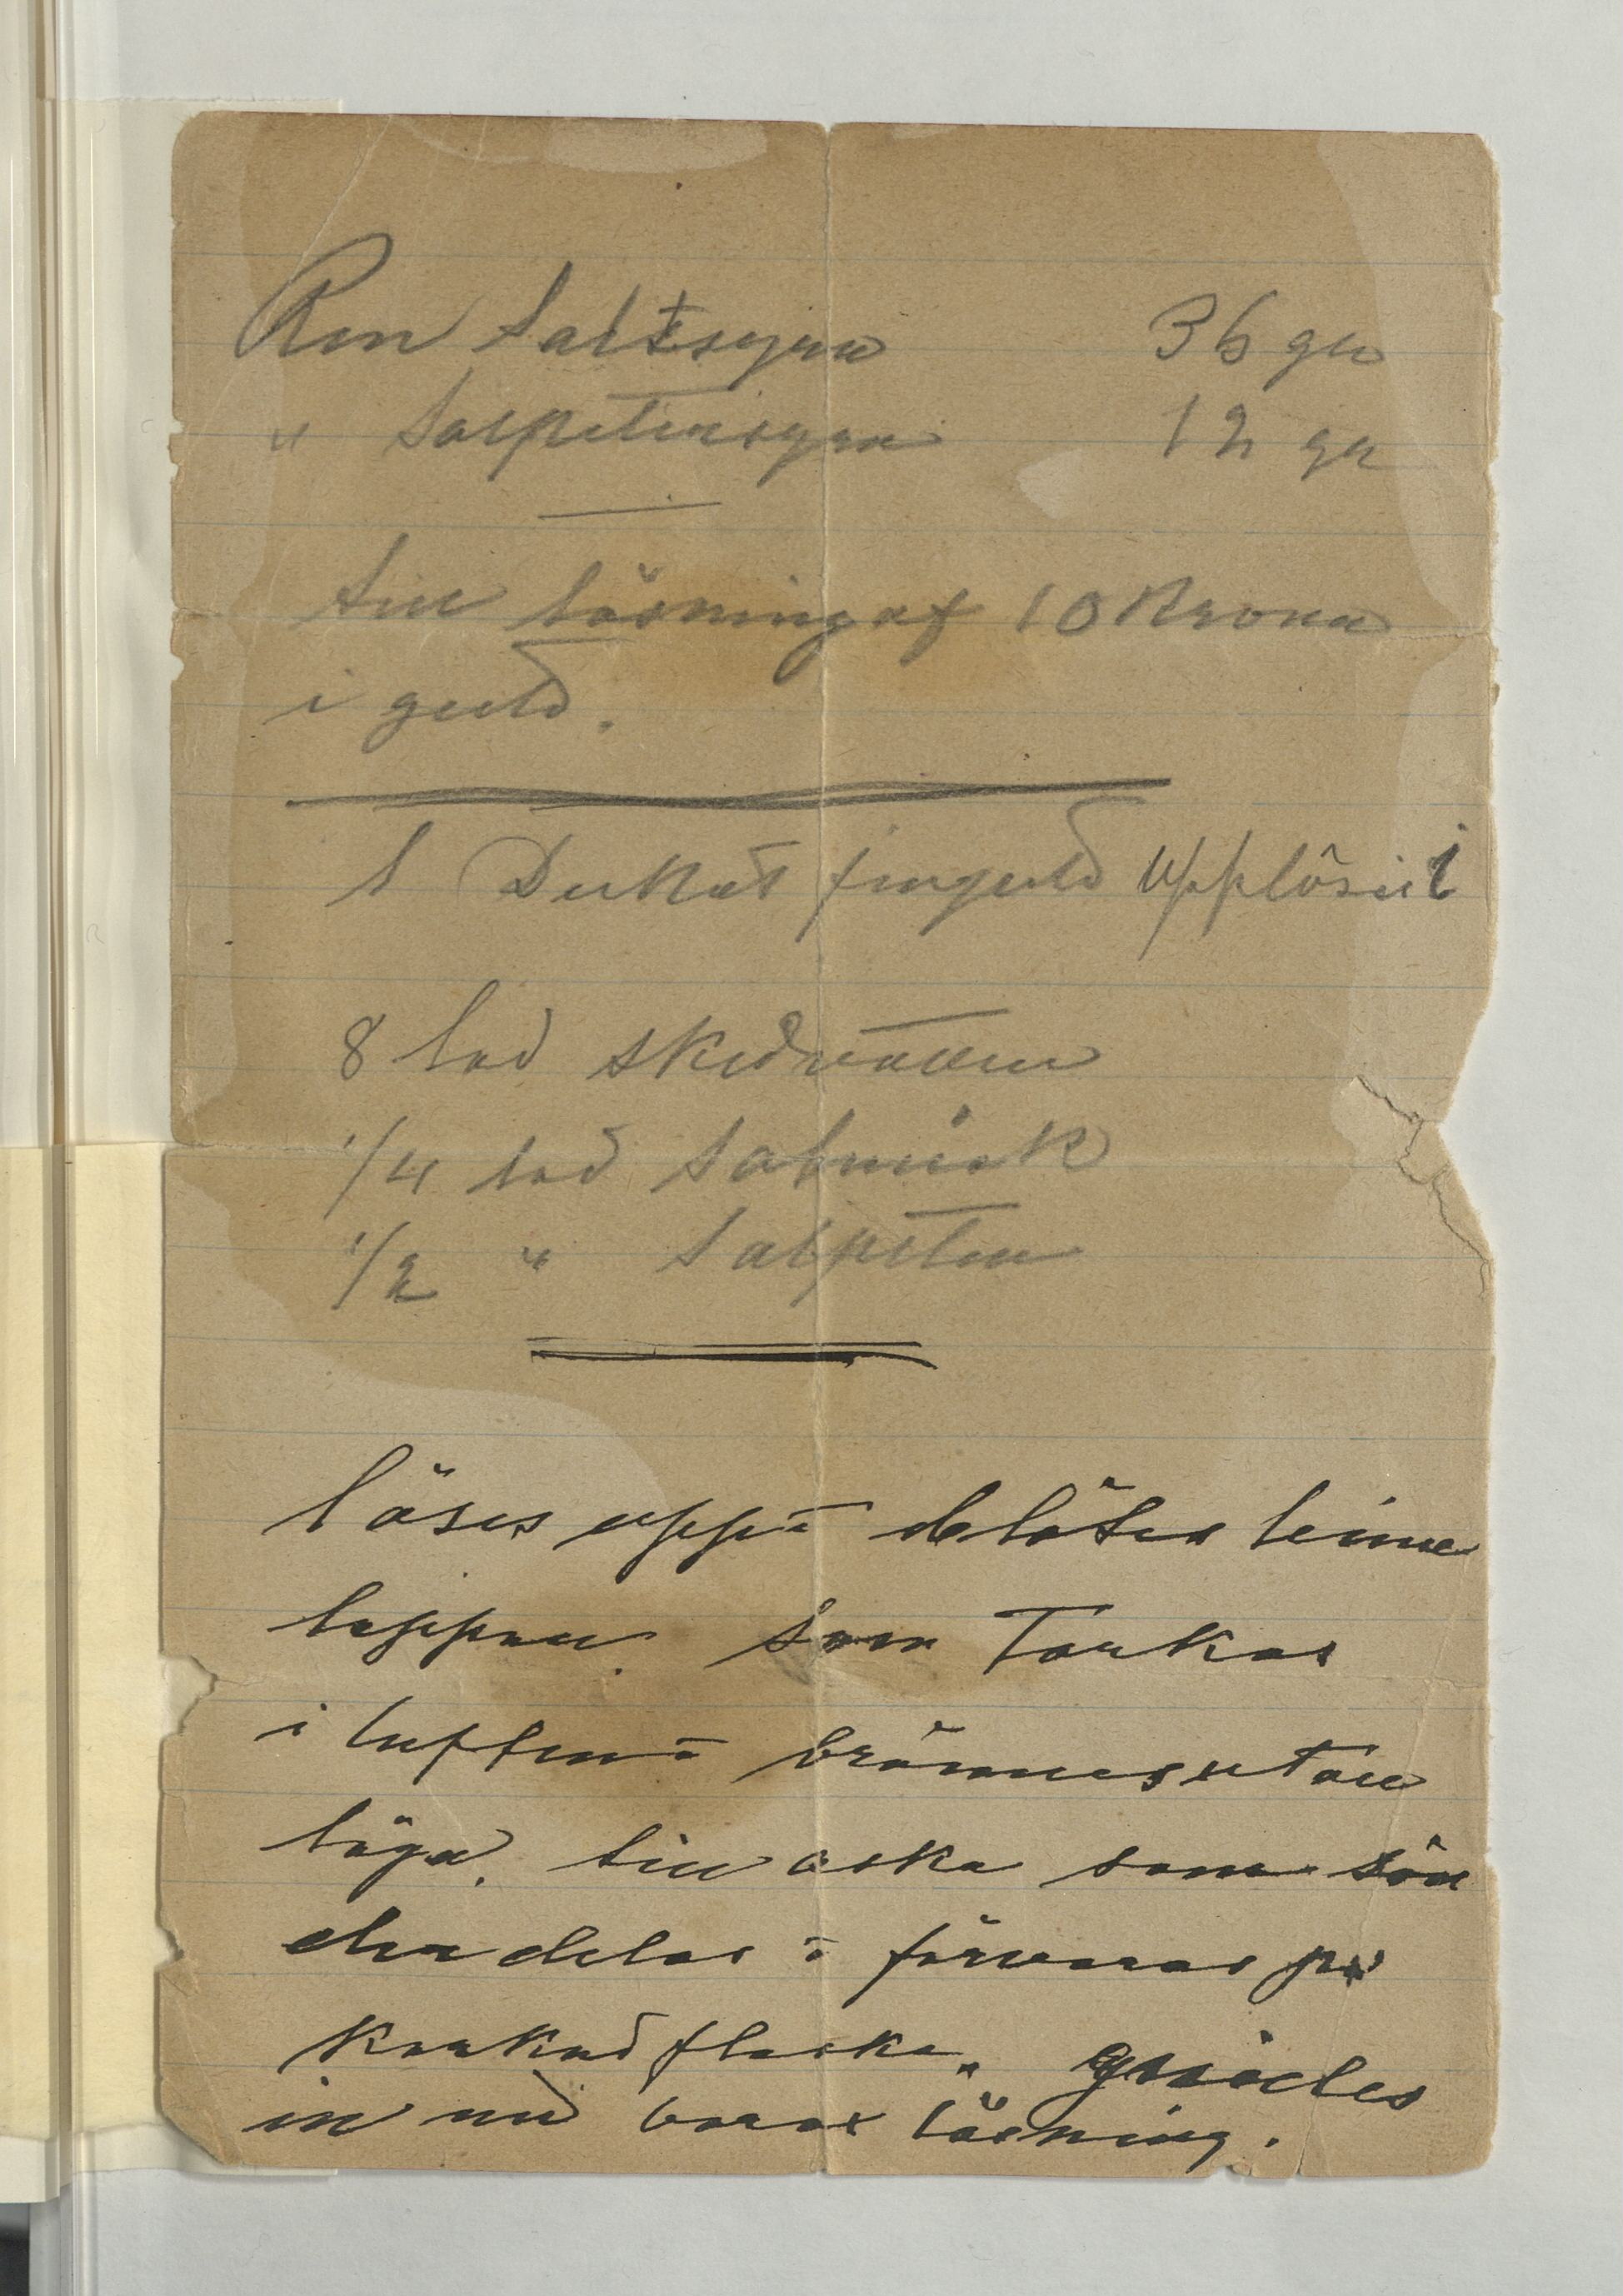 Ren Saltsyra 36 gr
" Salpetersyra 12 gr
till lösning af 10 Krona
i guld.
1 Dukat finguld Upplöses i
8 lod skedvatten
1/4 lod Salmiak
1/2 " Salpeter
löses upp i blötes linne
lappar. som Torkas
i luften å brännes utan
låga. till aska som sön
der delas å förvaras på
Korkad flaska. gnides
in med borax lösning.